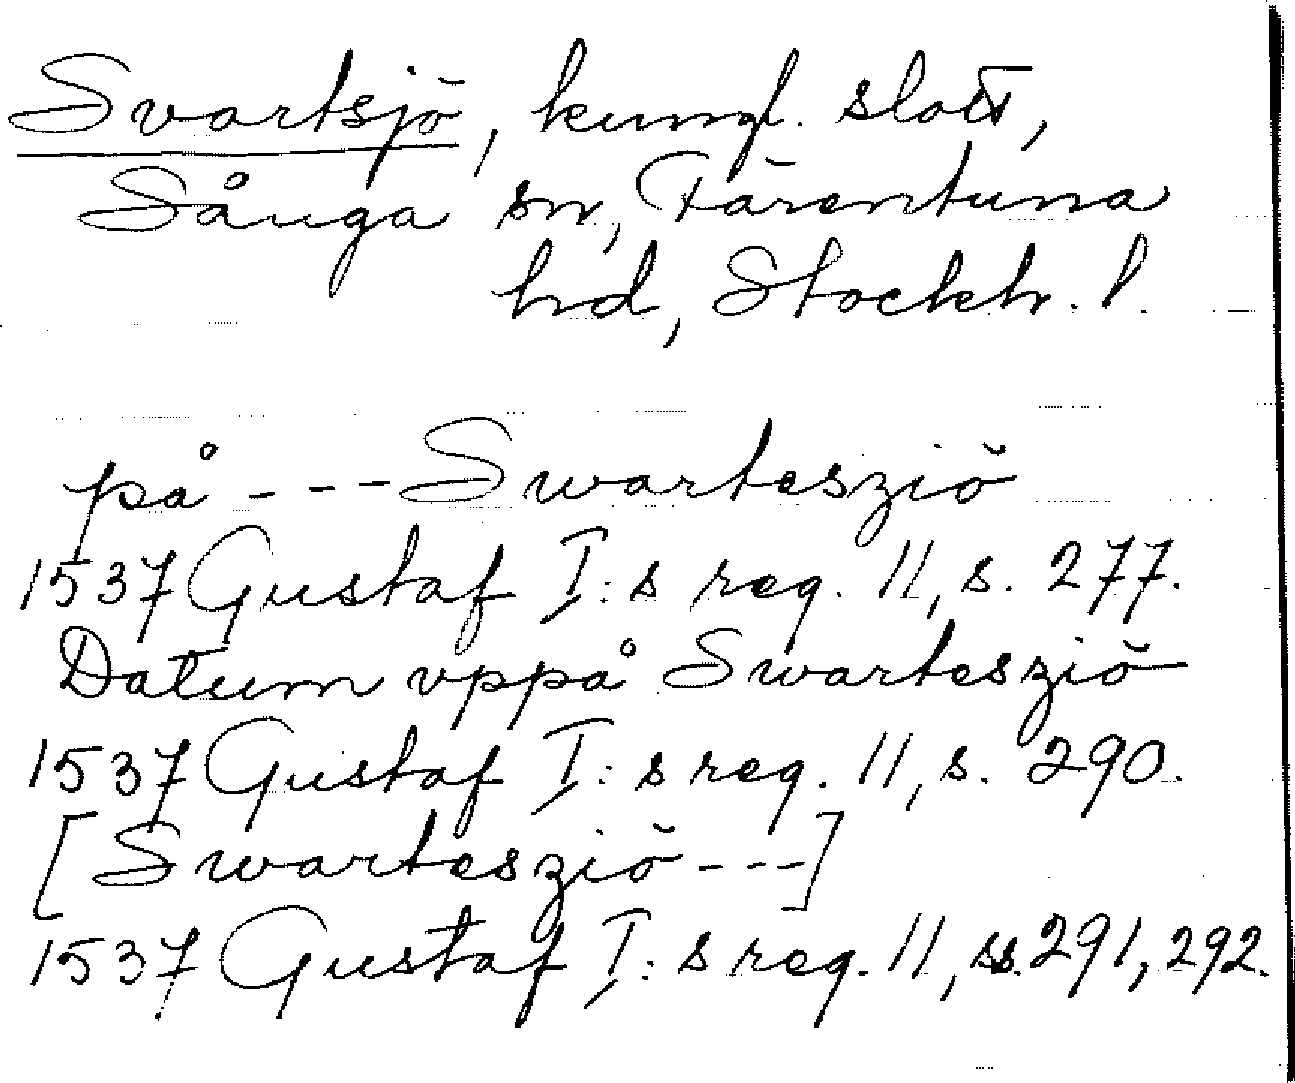 Svartsjö, kungl. slott,
Sånga sn, Färentuna
hd, Stockh. l.
på --- Swartesziö
1537 Gustaf I:s reg. 11, s. 277.
Datum vppå Swartesziö
1537 Gustaf I:s reg. 11, s. 290.
[Swartesziö ---]
1537 Gustaf I:s reg. 11, ss. 291, 292.